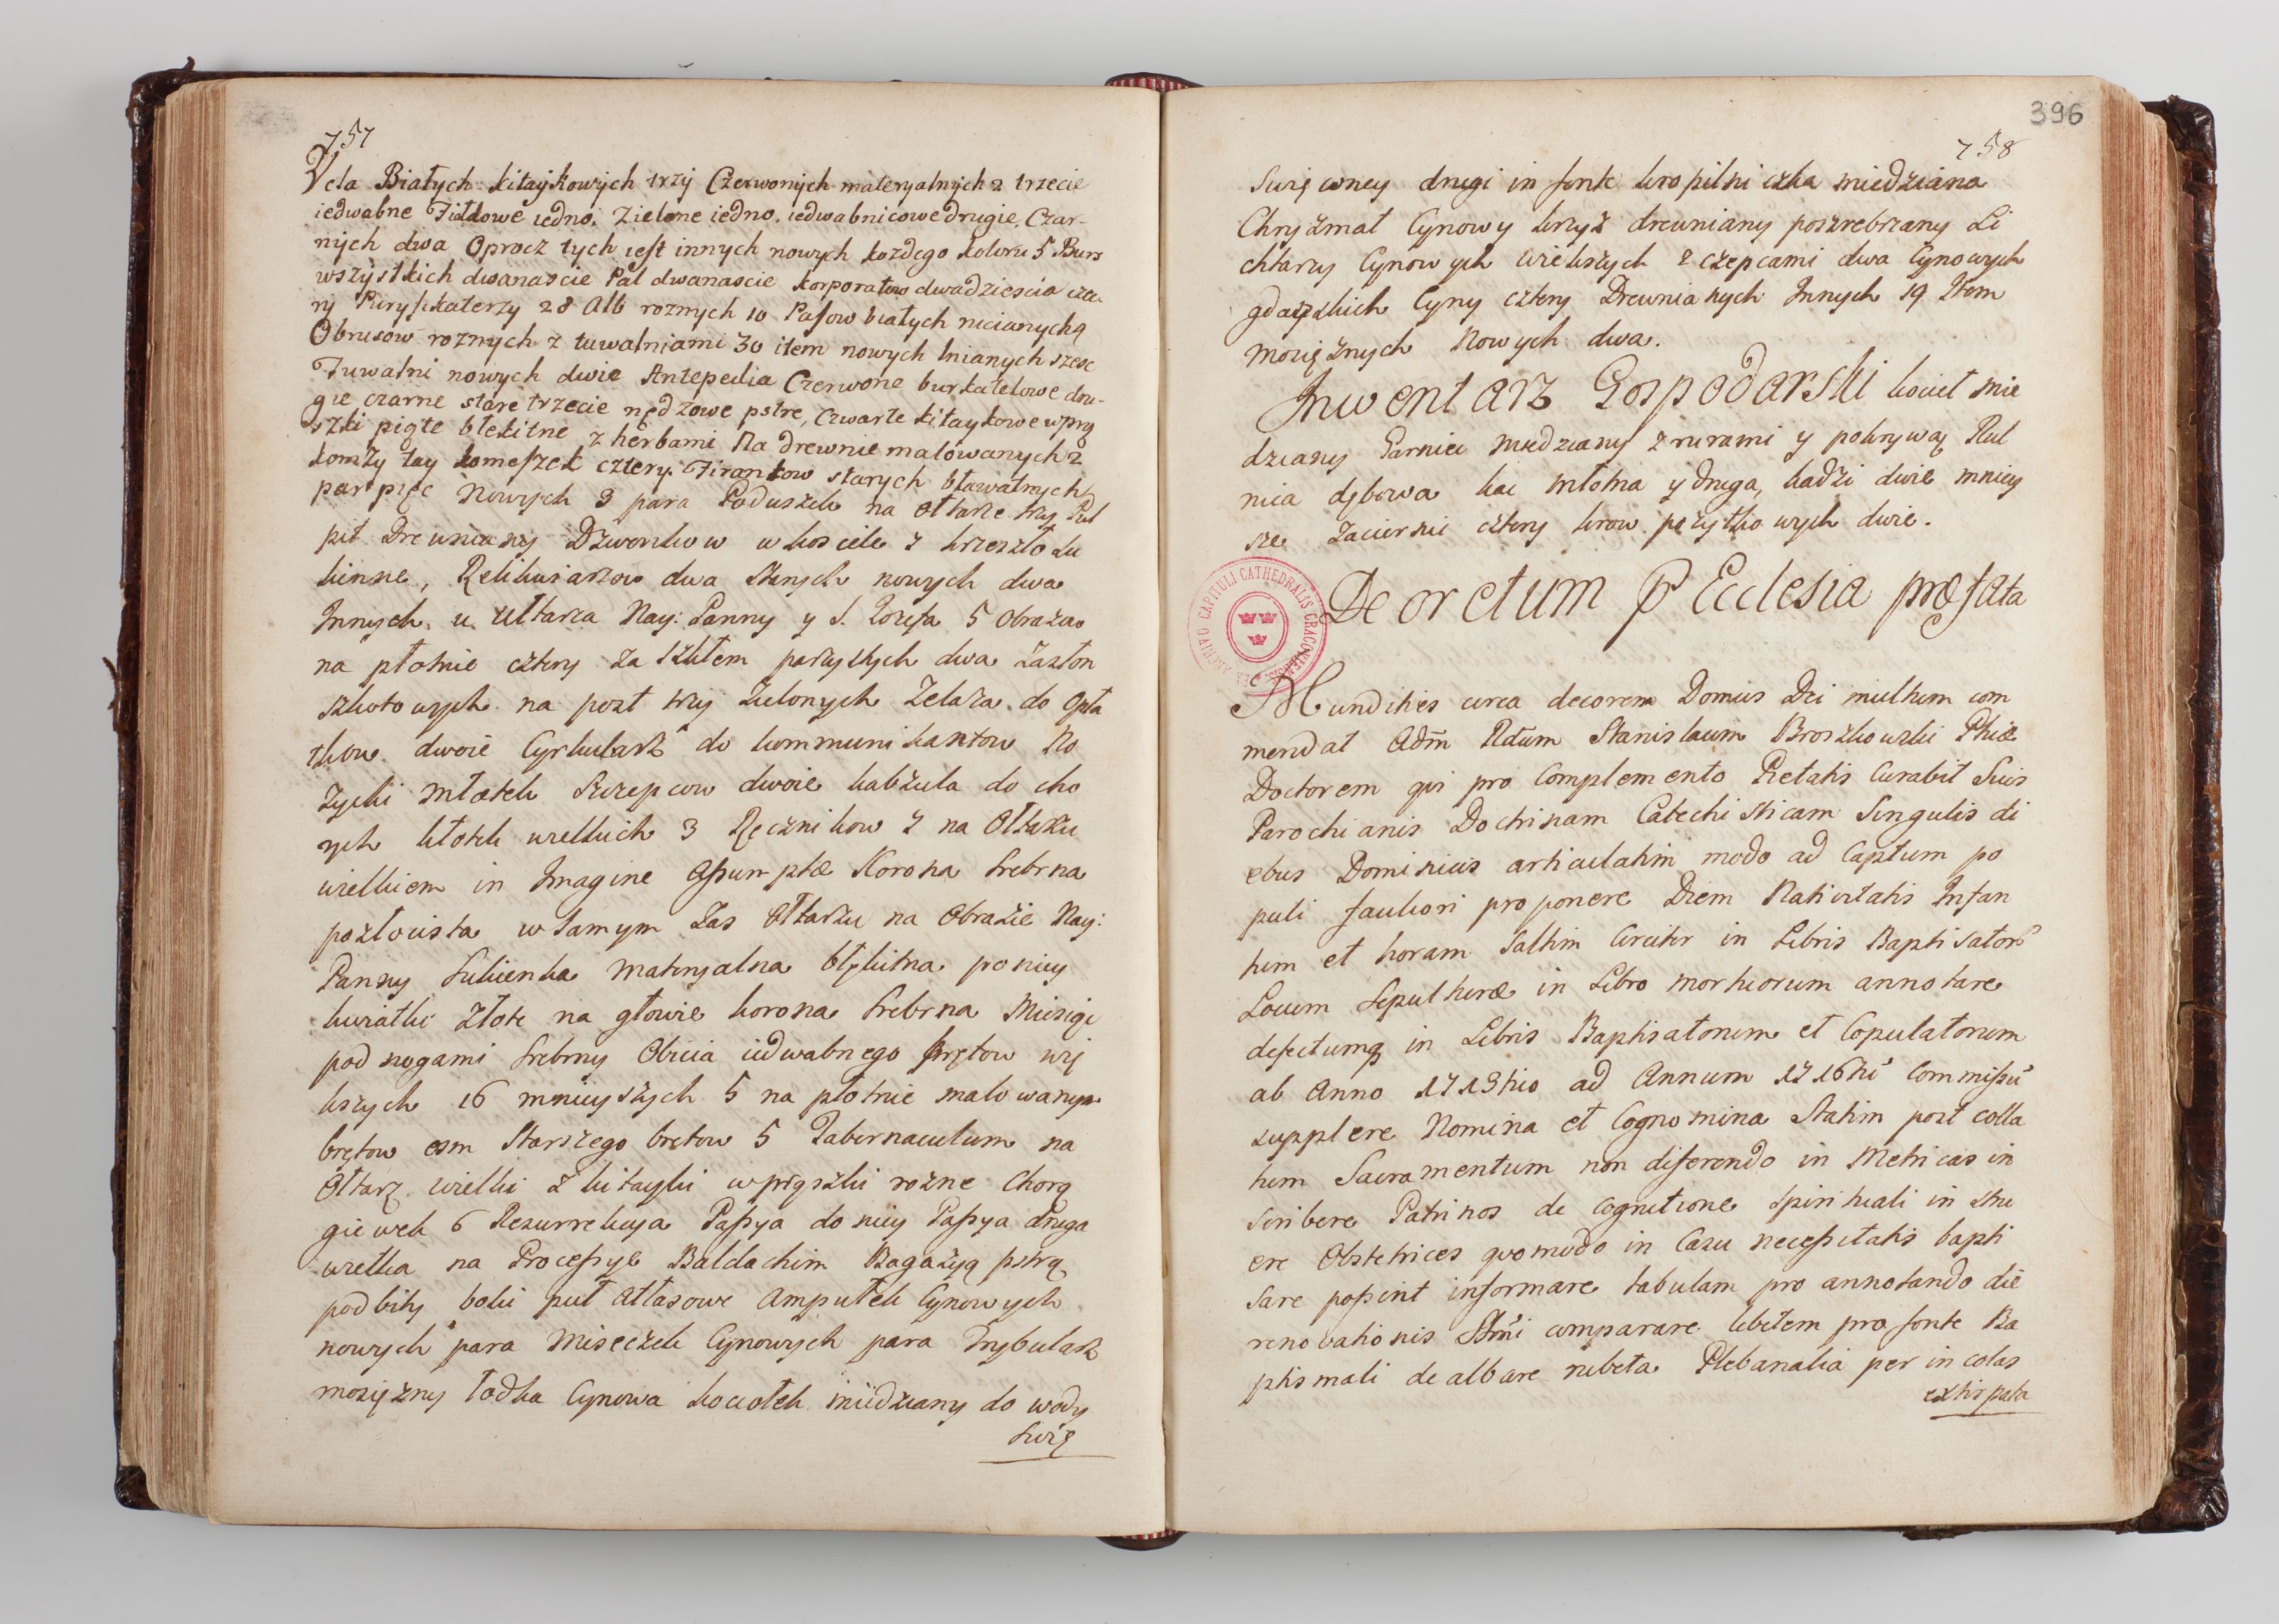 757
Vela Białych kitaykowych trzy Czerwonych materyalnych 2 trzecie
iedwabne Fiałkowe iedno, Zielone iedno, iedwabnicowe drugie, Czar-
nych dwa Oprocz tych iest innych nowych kozdego koloru 5 Burs
wszystkich dwanascie Pal dwanascie korporałow dwadziescia czte
ry Puryfikaterzy 28 Alb roznych 10 Pasow białych nicianych 9
Obrusow roznych z tuwalniami 30 item nowych lnianych szesc
Tuwalni nowych dwie Antepedia Czerwone burkatelowe dru-
gie czarne stare trzecie nędzowe pstre, czwarte kitaykowe w prą
szki piąte błekitne z herbami Na drewnie malowanych 2
komży tay komeszek cztery. Firankow starych bławatnych
par pięc Nowych 3 para Poduszek na ołtarze trzy Pul
pit Drewniany Dzwonkow w kosciele 7 krzeszło Su
kienne, Relikwiarzow dwa Starych nowych dwa
Innych u ultarza Nay: Panny y S. Jozefa 5 Obrazow
na płotnie cztery za szkłem paryskych dwa Zasłon
szkotowych na post trzy Zielonych Zelaza do Opła
tkow dwoie Cyrkularz do kommunikantow No
życki młotek Szczepcow dwoie kabzula do cho
rych kłotek wielkich 3 Ręcznikow 7 na Ołtarzu
wielkiem in Imagine Assumptæ Korona srebrna
pozłocista w tamym zas ołtarzu na Obrazie Nay:
Panny Sukienka materyalna błękitna po niey
kwiatki złote na głowie korona srebrna Miesiąc
pod nogami srebrny Obicia iedwabnego bretow wię
kszych 16 mnieyszych 5 na płotnie malowanych
bretow osm Starszego bretow 5 Tabernaculum na
Ołtarz wielki z kitayki w prązki rozne Chorą
giewek 6 Rezurrekcya Passya do niey Passya druga
wielka na Processye Baldachim Bagazyą pstrą
podbity boki puł Atłasowe Ampułek Cynowych
nowych para Miseczek Cynowych para Trybularz
mosiężny łodka Cynowa kociołek miedziany do wody
Swię
396
758
Swięconey drugi in fonte kropilniczka miedziana
Chryzmal Cynowy krzyż drewniany poszrebrzany Li
chtarzy Cynowych wiekszych z czepcami dwa Cynowych
gdańskich Cyny cztery Drewnianych Innych 19 Item
mosiężnych Nowych dwa.
Inwentarz Gospodarski kocieł mie
dziany Garniec miedziany z rurami y pokrywą Rul
nica dębowa kac młotna y druga, kadzi dwie mniey
sze Zaciernie cztery krow pożytkowych dwie.
Decretum p Ecclesia præfata
Mundities circa decorem Domus Dei multum com
mendat Adm Rdum Stanislaum Broszkowski Phiæ
Doctorem qui pro Complemento Pietatis Curabit Suis
Parochianis Doctrinam Catechisticam Singulis di
ebus Dominicis articulatim modo ad Captum po
puli faciliori proponere Diem Nativitatis Infan
tum et horam Saltim Circiter in Libris Baptisator
Locum Sepulturæ in Libro mortuorum annotare
defectumq in Libris Baptisatorum et Copulatorum
ab Anno 1713tio ad Annum 1716tū Commissū
supplere Nomina et Cognomina Statim post colla
tum Sacramentum non diferendo in Metricas in
scribere Patrinos de Cognatione Spirituali in stru
ere Obstetrices quomodo in Casu necessitatis bapti
sare possint informare tabulam pro annotando die
renovationis Smi comparare libetem pro fonte Ba
ptismali dealbare rubeta Plebanalia per incolas
extirpata
ARCHIVO CAPITULI CATHEDRALIS CRACOVIENSIS